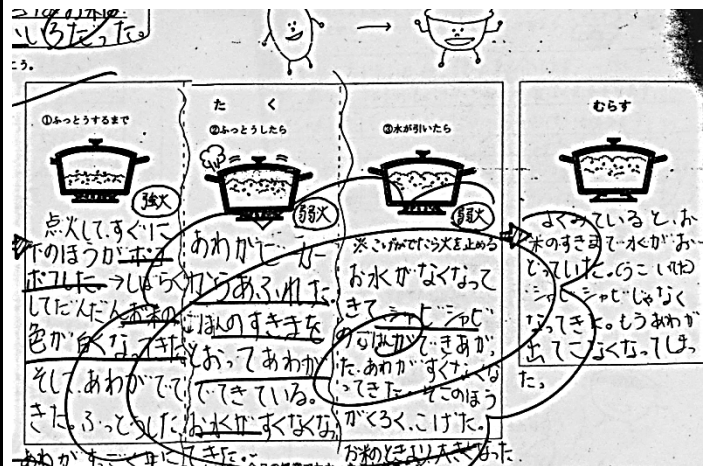 いろだった。
こう。
たく
①ふっとうするまで
強火
点火して、すぐに
下のほうがポコ
ポコした。→しばらく
してだんだんお米の
色が白くなってきた
そして、あわがでて
きた。ふっとうした。
②ふっとうしたら
弱火
あわが
からあふれた。
ごはんのすきまを
とおってあわが
でてきている。
お水がすくなくなっ
てきた。
③水が引いたら
弱火
※こげがでたら火を止める
お水がなくなって
きてシャビシャビ
のごはんができあがっ
た。あわがすくなくな
ってきた。そこのほう
がくろく、こげた。
お米のときより大きくなった
むらす
よくみていると、お
米のすきまで水がお
どっていた。(うごいてた)
シャビシャビじゃなく
なってきた。もうあわが
出てこなくなってしまっ
た。